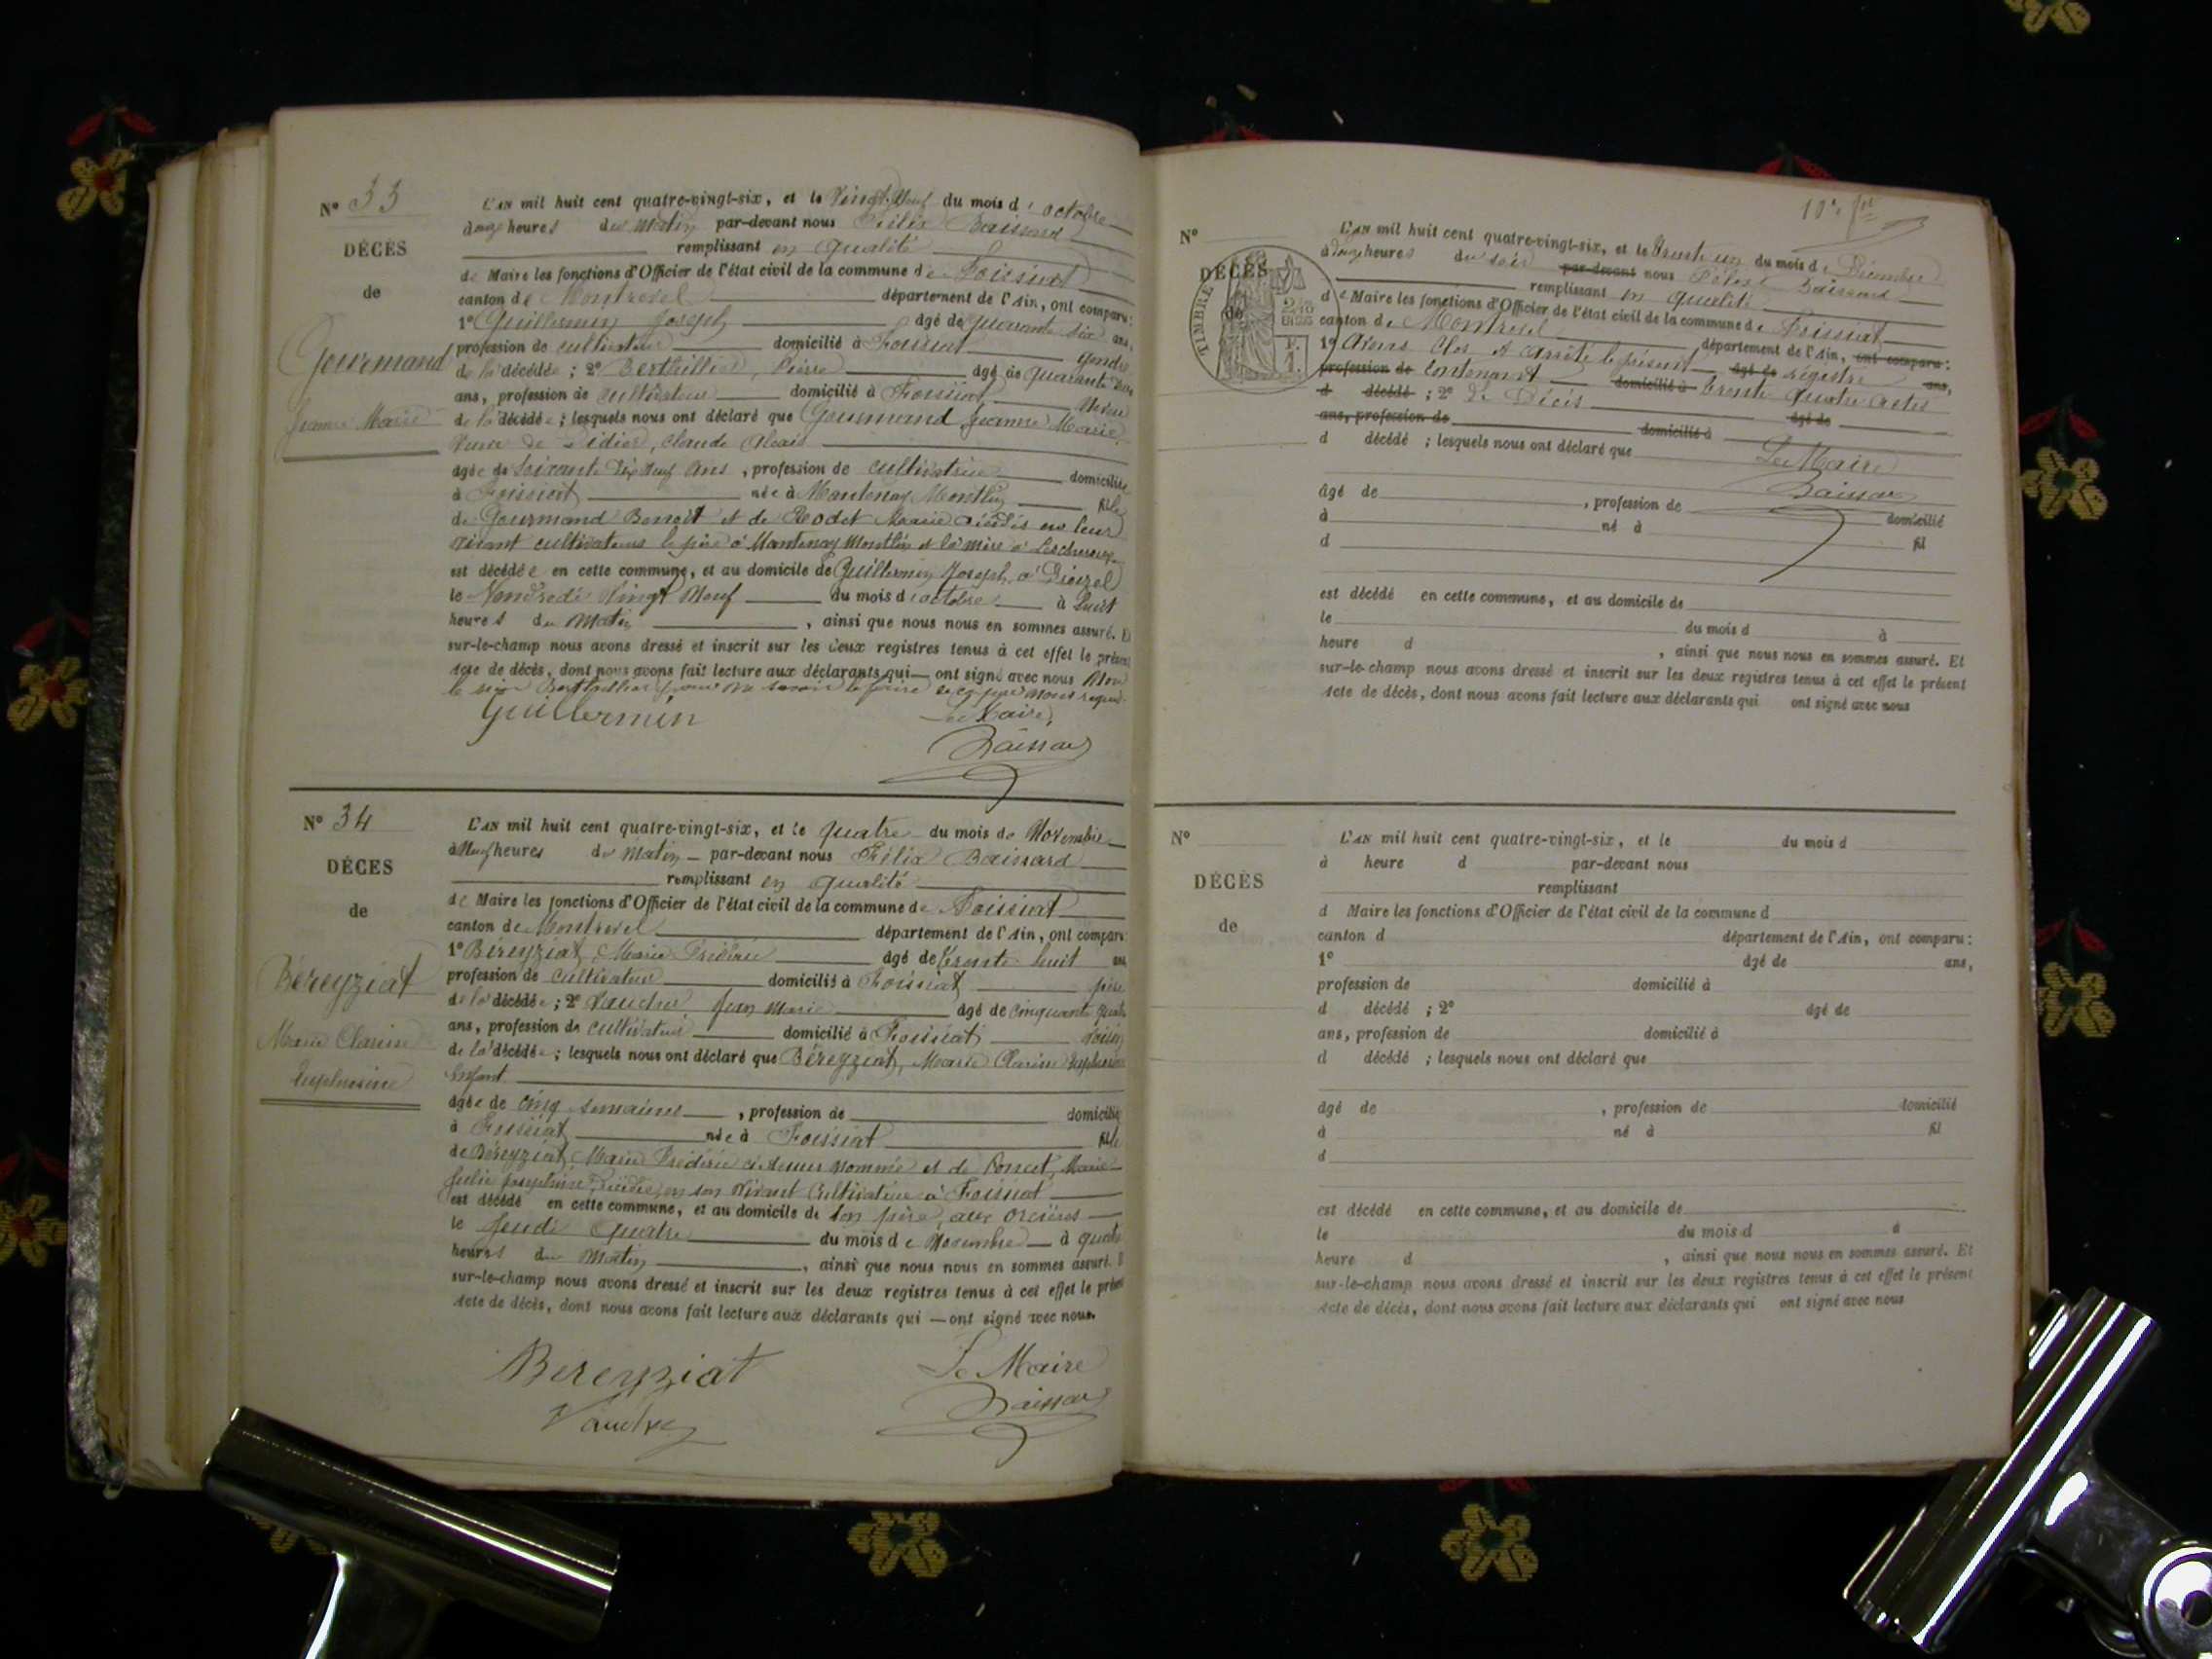 N° 33
DÉCÈS
de
Gourmand
Jeanne Marie
L'AN mil huit cent quatre-vingt-six, et le Vingt Neuf du mois d'octobre
à onze heures du Matin par-devant nous Félix Baissard
remplissant en qualité
de Maire les fonctions d'Officier de l'état civil de la commune de Foissiat
canton de Montrevel département de l'Ain, ont comparu:
1° Guillermin Joseph âgé de quarante six ans,
profession de cultivateur domicilié à Foissiat gendre
de la décédée; 2° Berthillier, Pierre âgé de quarante
ans, profession de cultivateur domicilié à Foissiat Neveu
de la décédée; lesquels nous ont déclaré que Gourmand Jeanne Marie,
Veuve de Didier, Claude
âgée de Soixante Dix Neuf ans, profession de cultivatrice domiciliée
à Foissiat née à Mantenay Montlin fille
de Gourmand Benoit et de Rodet Marie décédés en leur
vivant cultivateurs le père à Mantenay Montlin et la mère à
est décédée en cette commune, et au domicile de Guillermin Joseph, à
le Vendredi Vingt Neuf du mois d'octobre à huit
heures du Matin, ainsi que nous nous en sommes assuré. Et
sur-le-champ nous avons dressé et inscrit sur les deux registres tenus à cet effet le présent
acte de décès, dont nous avons fait lecture aux déclarants qui ont signé avec nous Non
le sieur Berthillier pour ne savoir le faire de ce par nous requis.
Guillermin
Le Maire,
Baissard
N° 34
DÉCES
de
Béreyziat
Marie Clarisse
Euphrosine
L'AN mil huit cent quatre-vingt-six, et le quatre du mois de Novembre
à Neuf heures du Matin par-devant nous Félix Baissard
remplissant en qualité
de Maire les fonctions d'Officier de l'état civil de la commune de Foissiat
canton de Montrevel département de l'Ain, ont comparu
1° Béreyziat, Marie Frédéric âgé de trente huit ans
profession de cultivateur domicilié à Foissiat père
de la décédée; 2° Vaucher Jean Marie âgé de cinquante quatre
ans, profession de cultivateur domicilié à Foissiat voisin
de la décédée; lesquels nous ont déclaré que Béreyziat, Marie Clarisse Euphrosine
Enfant
âgée de cinq semaines, profession de domiciliée
à Foissiat née à Foissiat fille
de Béreyziat Marie Frédéric ci-dessus nommé et de Poncet, Marie
Julie Joséphine, Décédée, en son vivant Cultivatrice à Foissiat
est décédé en cette commune, et au domicile de son père, aux
le Jeudi Quatre du mois de Novembre à quatre
heures du Matin, ainsi que nous nous en sommes assuré.
sur-le-champ nous avons dressé et inscrit sur les deux registres tenus à cet effet le présent
acte de décès, dont nous avons fait lecture aux déclarants qui ont signé avec nous.
Béreyziat
Le Maire
Baissard
10e ft
N°
DÉCÈS
de
TIMBRE
L'AN mil huit cent quatre-vingt-six, et le trente un du mois de Décembre
heures du soir par-devant nous Félix Baissard
remplissant en qualité
de Maire les fonctions d'Officier de l'état civil de la commune de Foissiat
canton de Montrevel département de l'Ain, ont comparu:
1° Avons Clos et arrêté le présent âgé de registre ans,
profession de Contenant domicilié à trente quatre actes
d décédé; 2° de Décès âgé de
ans, profession de domicilié à
d décédé; lesquels nous ont déclaré que
Le Maire
Baissard
âgé de, profession de domicilié
à né à fil
d
est décédé en cette commune, et au domicile de
le du mois d à
heure d, ainsi que nous nous en sommes assuré. Et
sur-le-champ nous avons dressé et inscrit sur les deux registres tenus à cet effet le présent
acte de décès, dont nous avons fait lecture aux déclarants qui ont signé avec nous
N°
DÉCÈS
de
L'AN mil huit cent quatre-vingt-six, et le du mois d
à heure d par-devant nous
remplissant
d Maire les fonctions d'Officier de l'état civil de la commune d
canton d département de l'Ain, ont comparu:
1° âgé de ans,
profession de domicilié à
d décédé; 2° âgé de
ans, profession de domicilié à
d décédé; lesquels nous ont déclaré que
âgé de, profession de domicilié
à né à fil
d
est décédé en cette commune, et au domicile de
le du mois d à
heure d, ainsi que nous nous en sommes assuré. Et
sur-le-champ nous avons dressé et inscrit sur les deux registres tenus à cet effet le présent
acte de décès, dont nous avons fait lecture aux déclarants qui ont signé avec nous